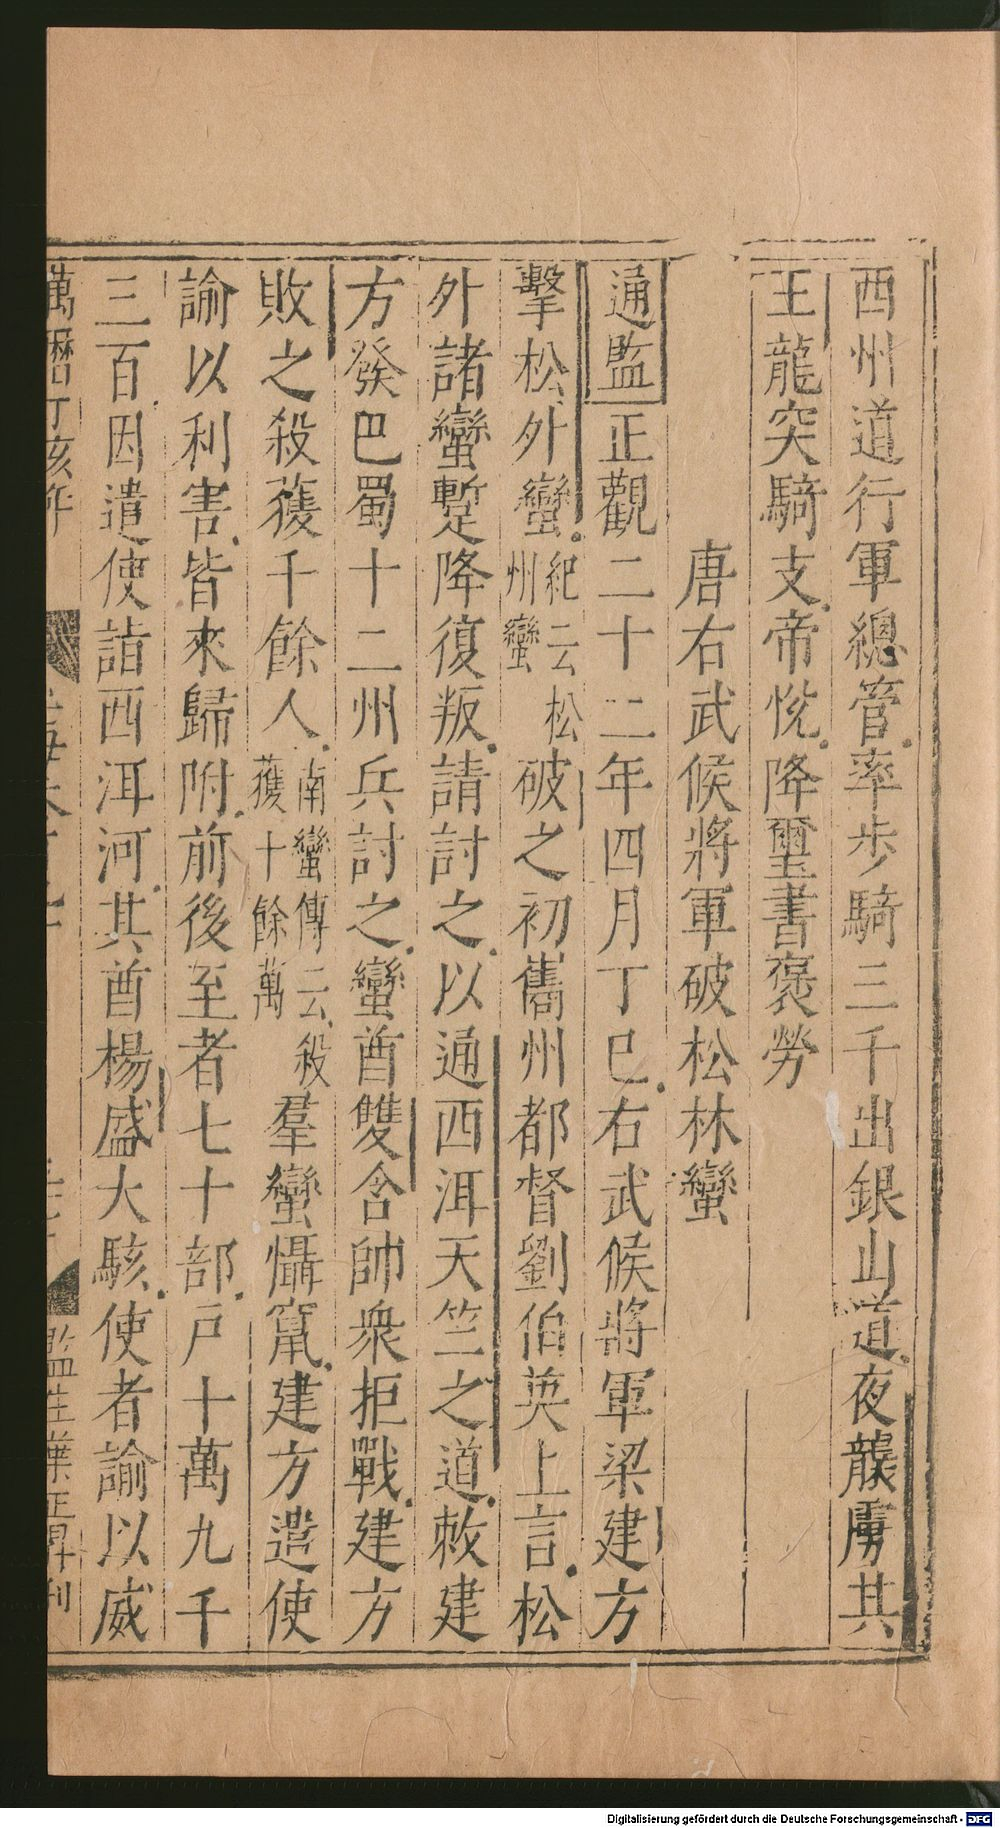 西州道行軍總管率步騎三千出銀山道夜襲虜其
王龍突騎支帝悅降璽書褒勞
唐右武候將軍破松林蠻
通監正觀二十二年四月丁巳右武候將軍梁建方
擊松外蠻紀云松州蠻破之初巂州都督劉伯英上言松
外諸蠻蹔降復叛請討之以通西洱天竺之道敕建
方發巴蜀十二州兵討之蠻酋雙舍帥衆拒戰建方
敗之殺獲千餘人南蠻傳云殺獲十餘萬羣蠻懾竄建方遣使
諭以利害皆來歸附前後至者七十部戶十萬九千
三百因遣使詣西洱河其酋楊盛大駭使者諭以威
萬曆丁亥年
監生葉正昇刊
Digitalisierung gefördert durch die Deutsche Forschungsgemeinschaft - DFG